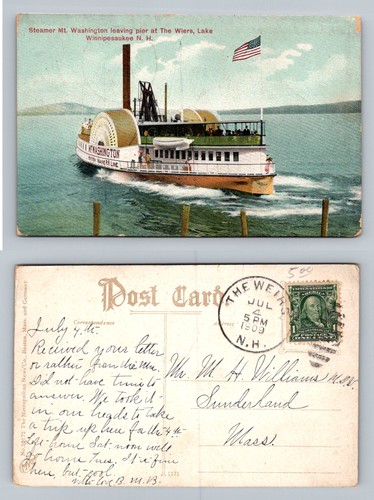 Steamer Mt. Washington leaving pier at The Wiers, Lake
Winnipesaukee N. H.
MT WASHINGTON
BOSTON MAINE R R LINE
Post Card
Correspondence
THE WEIRS
JUL
4
5 PM
1909
N.H.
5.00
1
July 4th
Received your letter
or rather
I did not have time to
answer. We took it
in our heads to take
a trip up here for the 4th
Left home Sat. noon will
go home Tues. It is fine
here but cool
B. M. B.
Mr. M H. Williams
Sunderland
Mass.
The Metropolitan News Co., Boston, Mass. and Germany